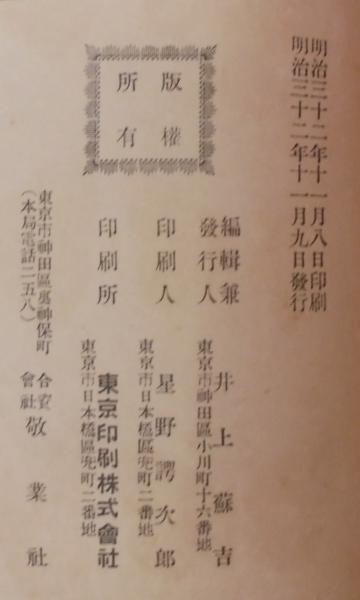 明治三十二年十一月八日印刷
明治三十二年十一月九日發行
版權
所有
編輯兼
發行人
井上蘇吉
東京市神田區小川町十六番地
印刷人
星野諤次郎
東京市日本橋區兜町二番地
印刷所
東京印刷株式會社
東京市日本橋區兜町二番地
東京市神田區裏神保町
(本局電話二五八)
合資
會社
敬業社